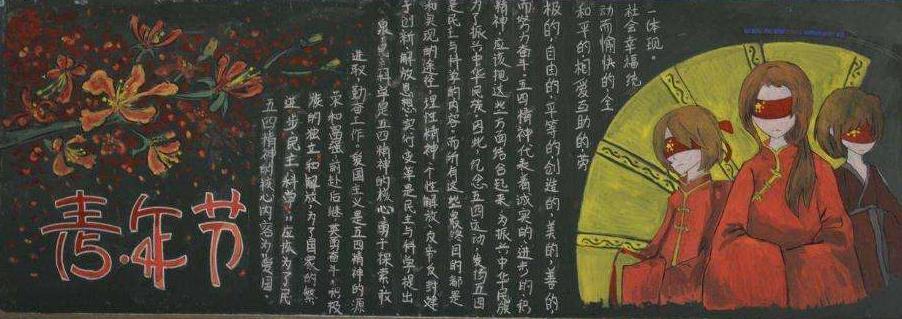 青年节
五四精神的核心内容为“爱国、
进步、民主、科学”,应该为了民
族的独立和解放,为了国家的繁
荣和富强,前赴后继、英勇奋斗、积极
进取、勤奋工作。爱国主义是五四精神的源
泉,民主与科学是五四精神的核心,勇于探索敢
于创新、解放思想、实行变革是民主与科学提出
和实现的途径,理性精神、个性解放、反帝反封建
是民主与科学的内容。而所有这些最终目的都是
为了振兴中华民族。因此,纪念五四运动,发扬五四
精神,应该把这些方面结合起来,为振兴中华民族
而努力奋斗。五四精神代表着诚实的、进步的、积
极的、自由的、平等的、创造的、美的、善的、
和平的、相爱互助的、劳
动而愉快的、全
社会幸福统
一体现。